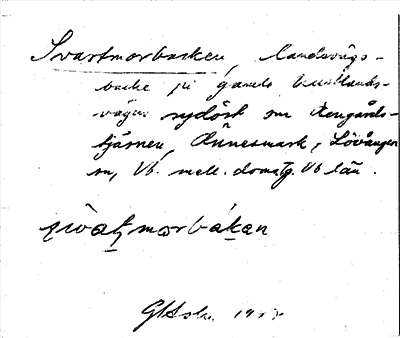 Svartmorbacken, landsvägs-
backe på gamla kustlands-
vägen sydöst om Stengårds-
tjärnen, Ånnesmark, Lövånger
sn, Vb. mell. domsg. Vb län.
morbakan
19